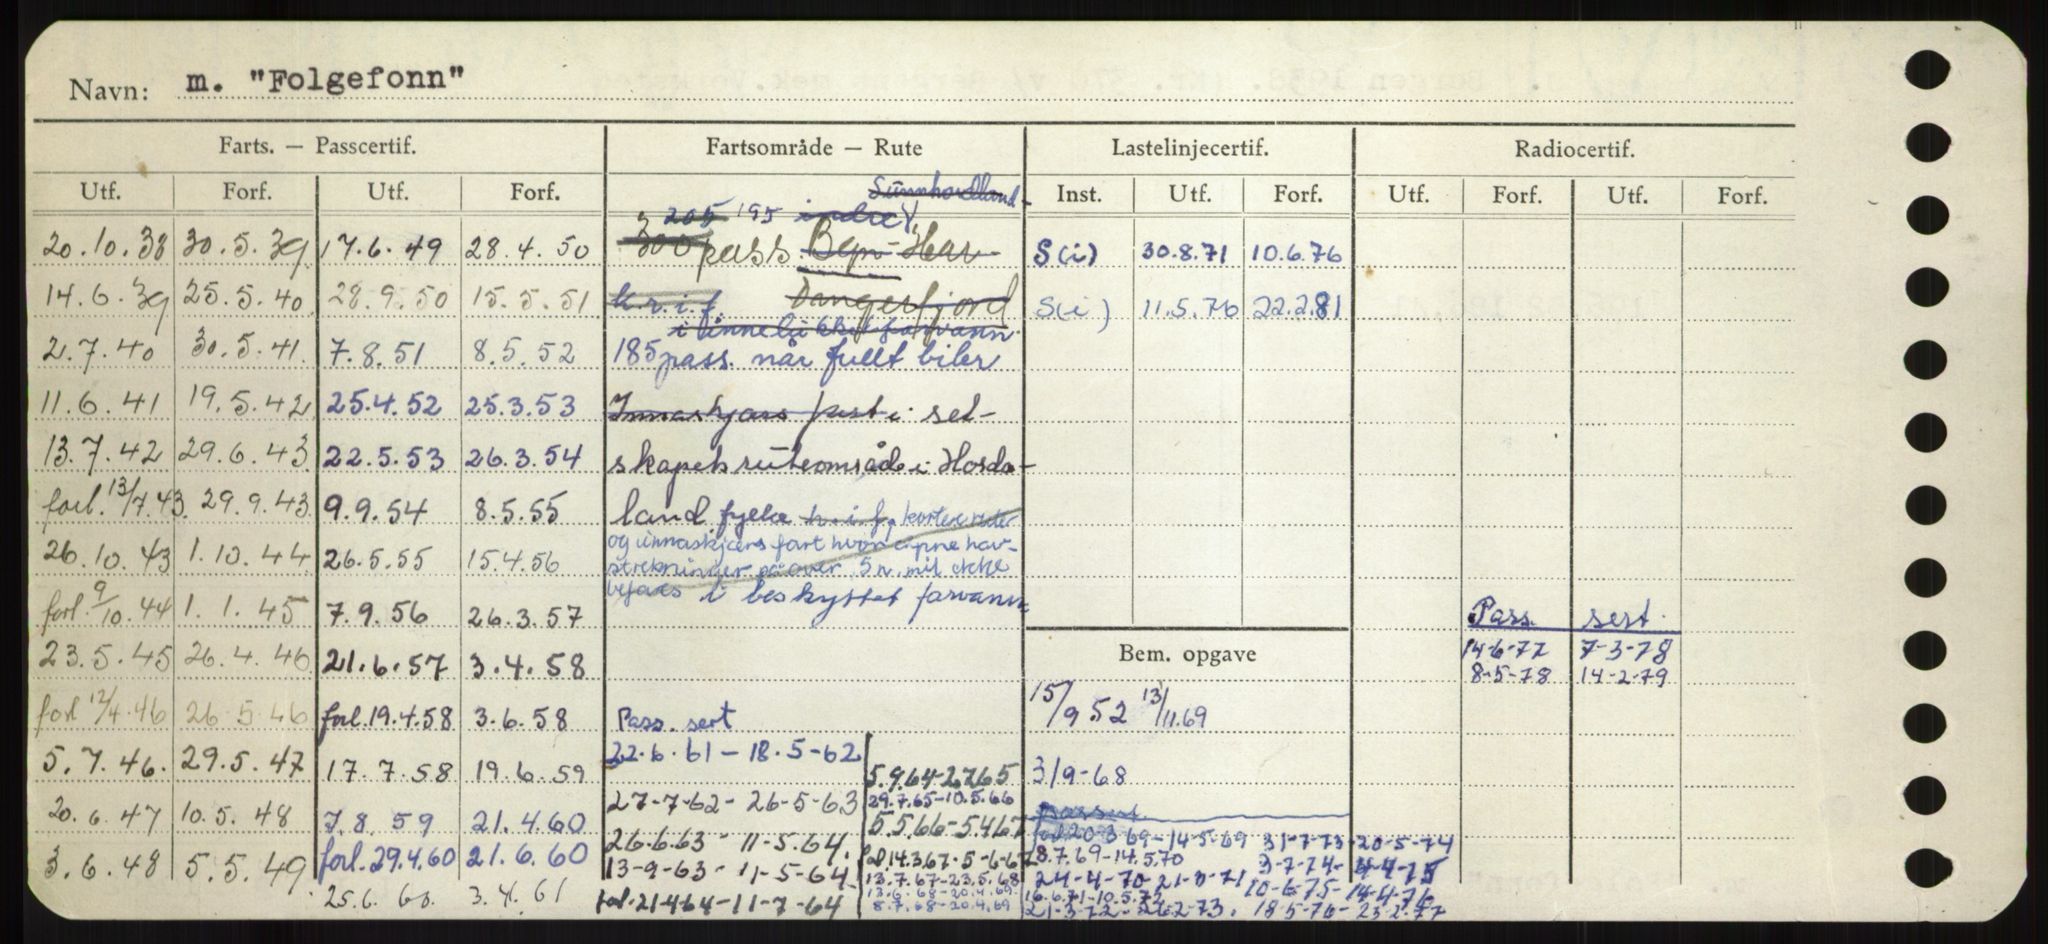 Navn: m. "Folgefonn"
Farts. — Passcertif. Fartsområde — Rute Lastelinjecertif. Radiocertif.
Utf. Forf. Utf. Forf. Inst. Utf. Forf. Utf. Forf. Utf. Forf.
Sunnhordland-
205 195 indre
20.10.38 30.5.39 17.6.49 28.4.50 300 pass Bgn-Har- S(i) 30.8.71 10.6.76
14.6.39 25.5.40 28.9.50 15.5.51 k.r.i.f. Dangerfjord S(i) 11.5.76 22.2.81
i innelukket farvann
2.7.40 30.5.41 7.8.51 8.5.52 185 pass. når fullt biler
11.6.41 19.5.42 25.4.52 25.3.53 Innaskjærs fart i sel-
13.7.42 29.6.43 22.5.53 26.3.54 skapets ruteområde i Horda-
forl. 13/7.43 29.9.43 9.9.54 8.5.55 land fylke k.i.f. kortere ruter
og innaskjærs fart hvor åpne hav-
26.10.43 1.10.44 26.5.55 15.4.56 strekninger på over 5 n. mil ikke
befares i beskyttet farvann
forl. 9/10.44 1.1.45 7.9.56 26.3.57 Pass. sert.
23.5.45 26.4.46 21.6.57 3.4.58 Bem. opgave 14-6-77 7-3-78
8-5-78 14-2-79
forl 12/4.46 26.5.46 forl.19.4.58 3.6.58 Pass. sert 15/9 52 13/11.69
22.6.61 - 18.5-62
5.7.46. 29.5.47 17.7.58 19.6.59 5.9.64-2.7.65 3/9-68
27-7-62 - 26-5-63 29.7.65-10.5.66
20.6.47 10.5.48 7.8.59 21.4.60 5.5.66-5.4.67 passert
26.6.63 - 11-5.64. forl 20-3-69-14-5-69 31-7-73-20-5-74
3.6.48 5.5.49 forl.29.4.60 21.6.60 13-9-63 - 11-5-64 forl.14.3.67-5-6-67 8.7.69-14.5.70 3-7-74-4-4-75
13.7.67-23.5.68 24-4-70-21-3-71 10-6-75-14-4-76
25.6.60. 3.4.61 forl.21-4-64-11-7-64 13.6.68-20.4.69 16.6.71-10.5.72
8.7.68-20.4.69 21-3-72-26-2-73. 18-5-76-23-2-77